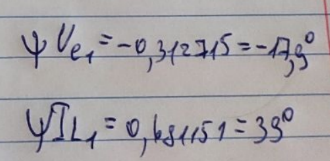 ψUe₁=-0,312715=-17,9⁰
ψIL₁=0,681151=39⁰